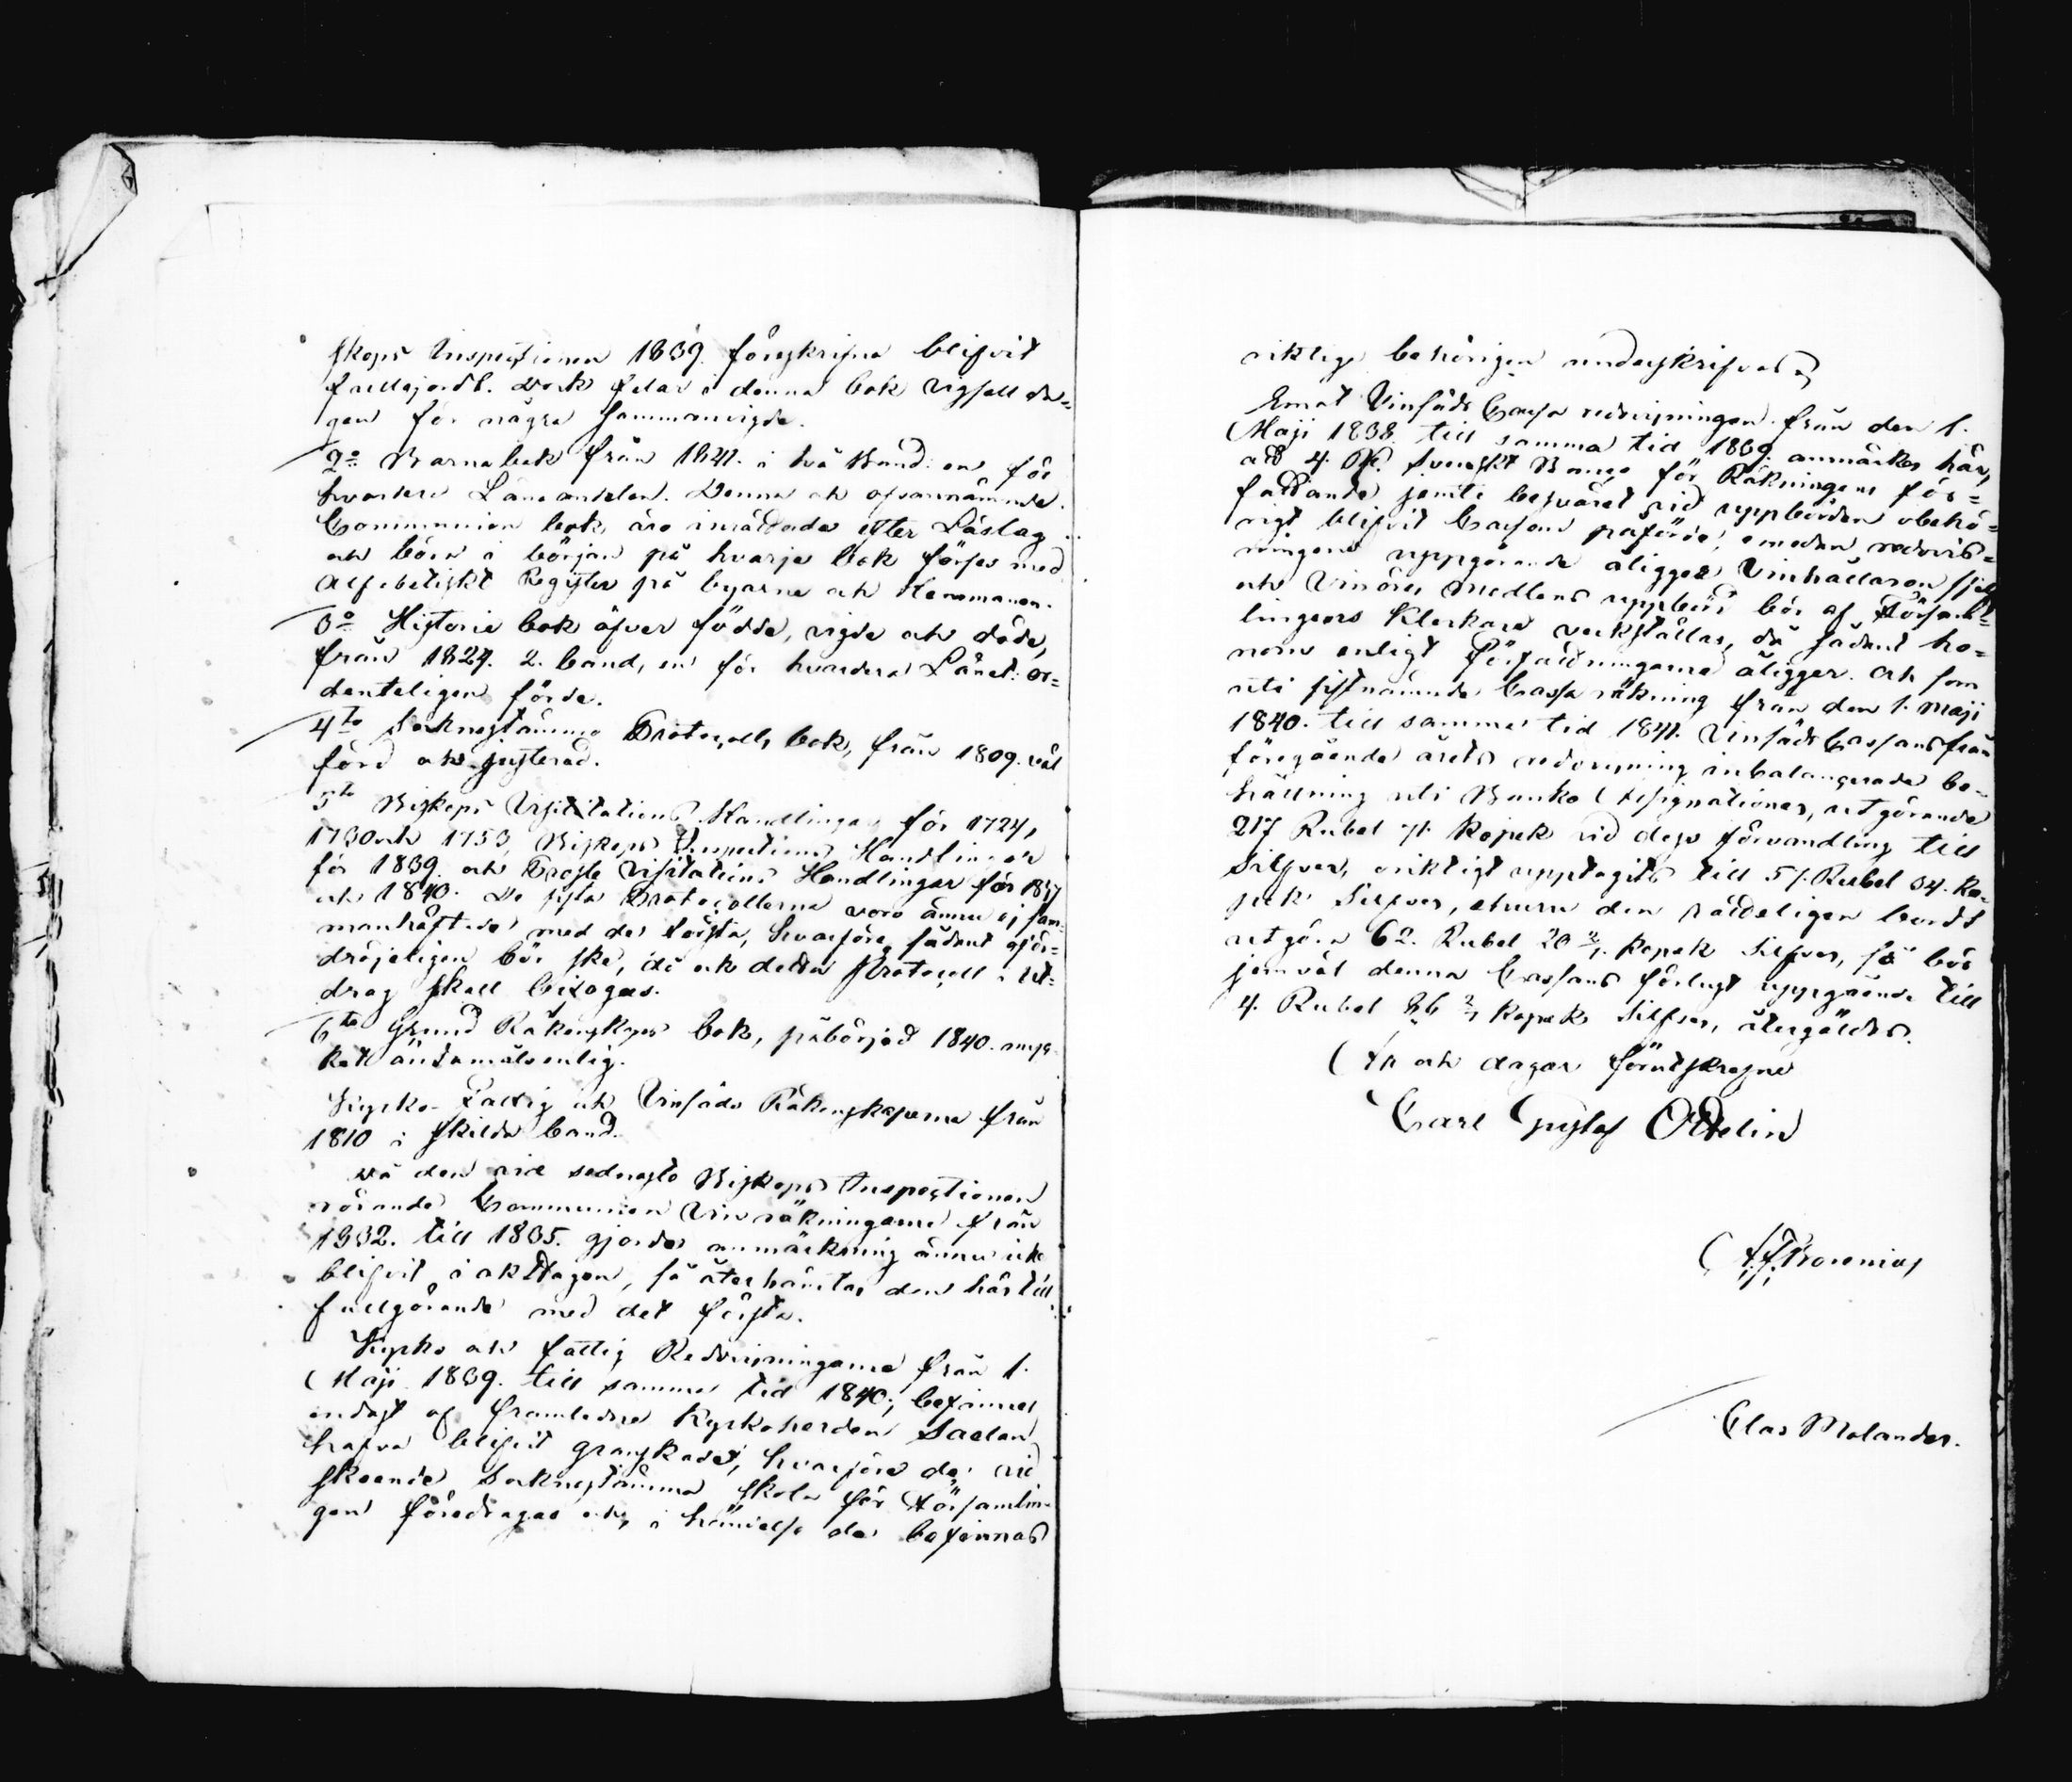 skops Inspectionen 1839. föreskrifna blifvit
fullgjordt. Dock felar i denna bok vigsell da=
gen för några sammanvigde.
2o Barnabok från 1841. i två Band: en för
hvardera Länsandelen. Denna och ofvannämnde
Communion bok äro inrättade efter Läslag
och böra i början på hvarje bok förses med
Alfabetiskt Register på byarne och Hemmanen.
3o Historie bok öfver födde, vigde och döde,
från 1824. 2. band, en för hvardera Länet: or=
denteligen förde.
4to Socknestämmo Protocolls bok, från 1809. väl
förd och justerad.
5to Biskops Visitations Handlingar för 1724,
1730 och 1753, Biskops Inspections Handlingar
för 1839. och Prosts Visitations Handlingar för 1837
och 1840. De sista Protocollerna voro ännu ej sam=
manhäftade med de första, hvarföre sådant oför=
dröjeligen bör ske, då och detta Protocoll i Ut=
drag skall bifogas.
6to Grund Räkenskaps bok, påbörjad 1840. myc=
ket ändamålsenlig.
Kyrko- Fattig och Vinsäds Räkenskaperna från
1810 i skilda band.
Då den vid sednaste Biskops Inspectionen
rörande Communion Vin räkningarne från
1832. till 1835. gjorde anmärkning ännu icke
blifvit i akttagen, så återhämtas den här till
fullgörande med det första.
Kyrko och fattig Redovisningarne från 1.
Maji 1839. till samma tid 1840, befinnes
endast af framledne Kyrkoherden Saelan
hafva blifvit granskadt, hvarföre de vid
skeende Socknestämma skola för Församlin-
gen föredragas och, i händelse de befinnas
riktige behörigen underskrifvas.
Emot Vinsäds Cassa redovisningen från den 1.
Maji 1838. till samma tid 1839. anmärkes här,
att 4. Svenskt Banco för Räkningens för=
fattande jemte besväret vid uppbörden obehö=
rigt blifvit Cassan påförde, emedan redovis=
ningens uppgörande åligger Vinhållaren sjelf
och Vinöres Medlens uppbörd bör af Försam=
lingens Klockare verkställas, då sådant ho=
nom enligt Författningarne åligger. och som
uti sistnämnde Cassa räkning från den 1. Maji
1840. till samma tid 1841. Vinsäds Cassans från
föregående årets redovisning inbalancerade be=
hållning uti Banko Assignationer, utgörande
217 Rubel 71. Kopek vid dess förvandling till
Silfver, oriktigt upptagits till 57. Rubel 34. Ko=
pek Silfver, ehuru den rätteligen bordt
utgöra 62. Rubel 20 2/7. Kopek Silfver, så bör
jemväl denna Cassans förlust uppgående till
4. Rubel 86 2/7 Kopek Silfver, återgäldas.
År och dagar förutskrefne
Carl Gustaf Ottelin
A. F. Borenius
Clas Molander.